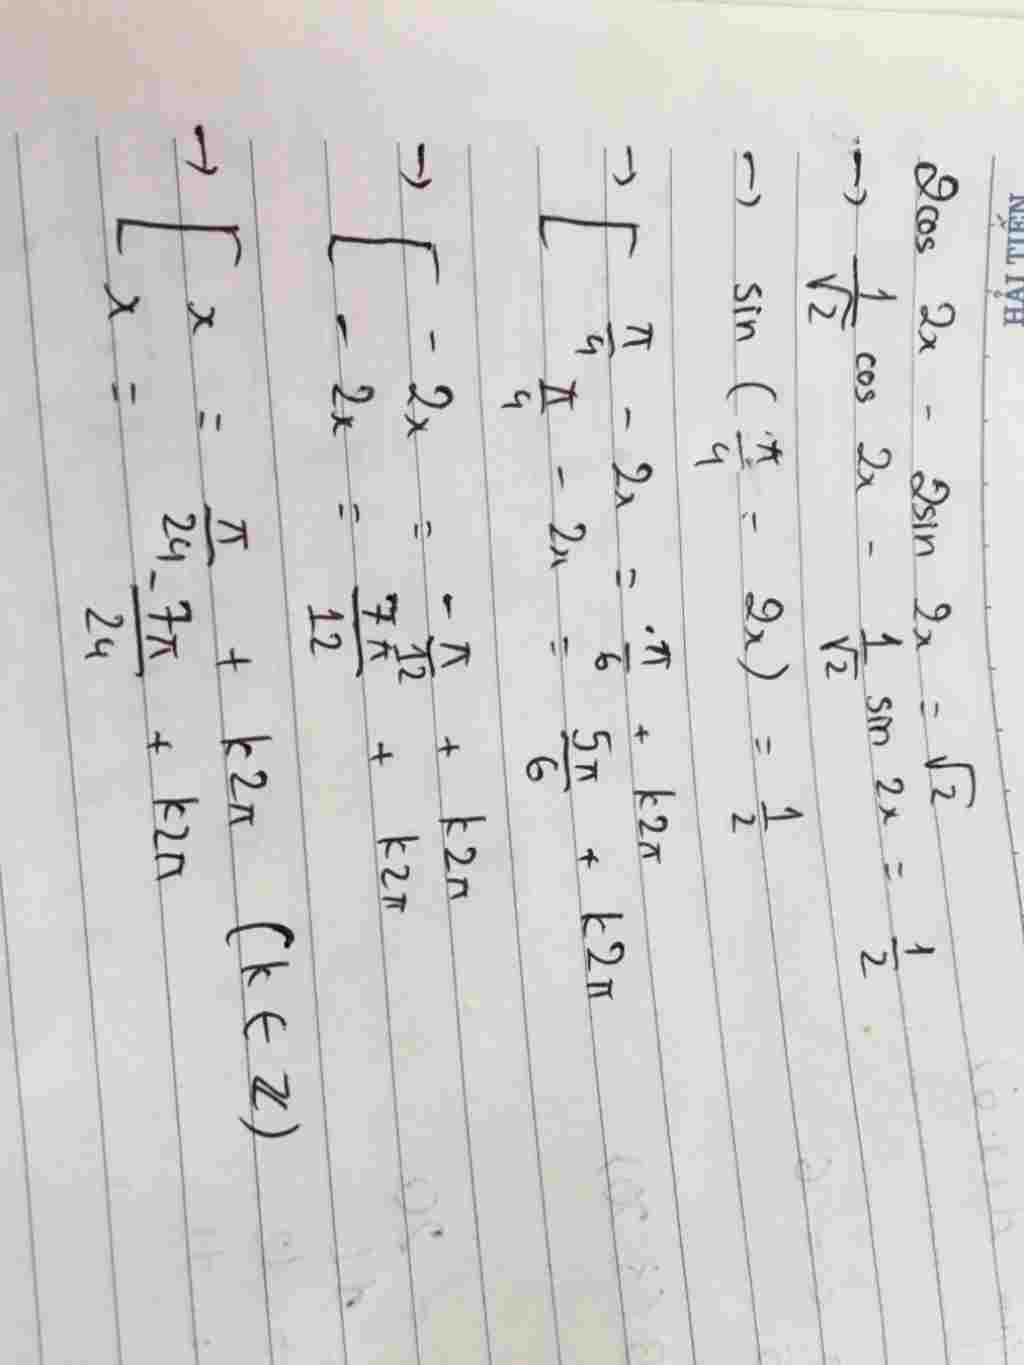 HẢI TIẾN
2cos 2x - 2sin 2x = √2
→ 1/√2 cos 2x - 1/√2 sin 2x = 1/2
→ sin (π/4 - 2x) = 1/2
→ [ π/4 - 2x = π/6 + k2π
π/4 - 2x = 5π/6 + k2π
→ [ - 2x = -π/12 + k2π
- 2x = 7π/12 + k2π
→ [ x = π/24 + k2π (k ∈ Z)
x = -7π/24 + k2π